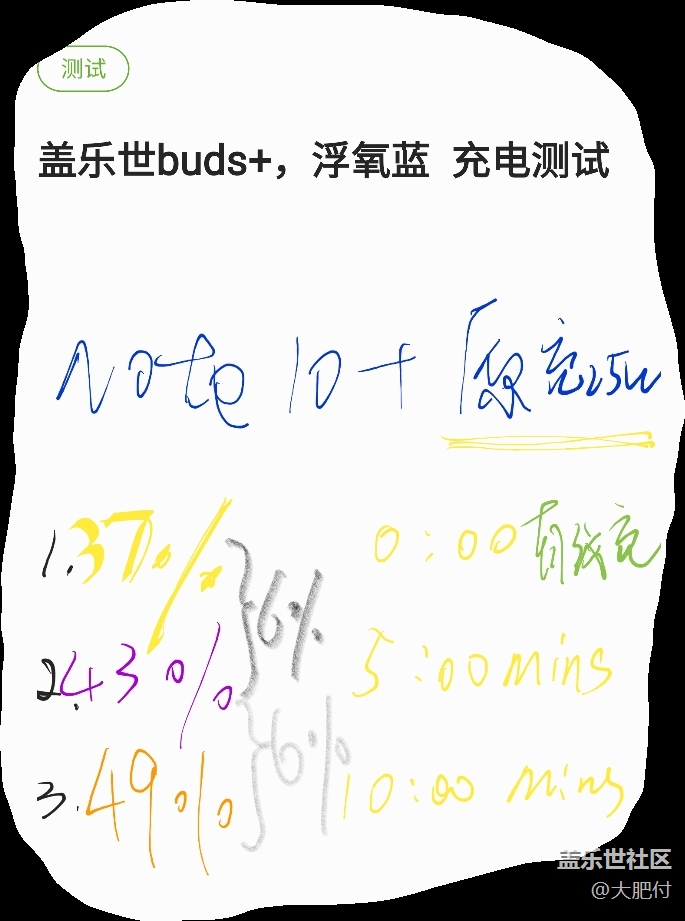 测试
盖乐世buds+，浮氧蓝 充电测试
Note 10+ 原充25W
1.37% 0:00有线充
6%
2.43% 5:00mins
6%
3.49% 10:00 mins
盖乐世社区
@大肥付